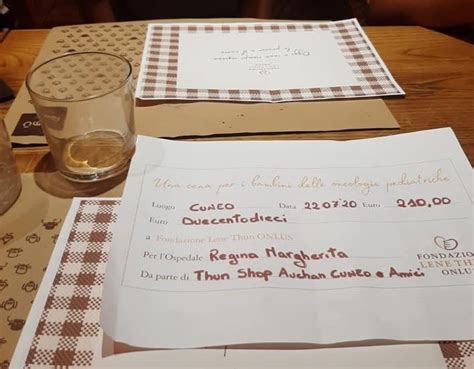 Una cena per i bambini delle oncologie pediatriche
Luogo CUNEO Data 22.07.20 Euro 210,00
Euro Duecentodieci
a Fondazione Lene Thun ONLUS
Per l'Ospedale Regina Margherita
Da parte di Thun Shop Auchan CUNEO e Amici
FONDAZIO
LENE TH
ONLU